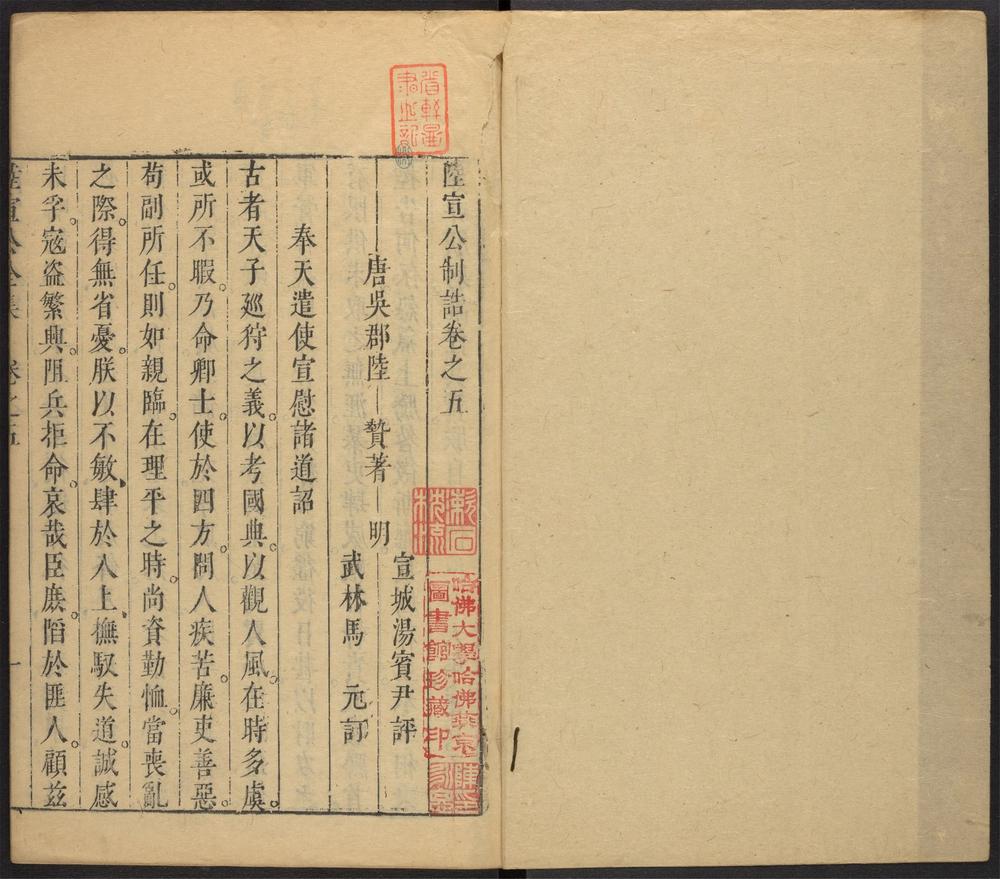 陸宣公制誥卷之五
唐吳郡陸 贄著 明
宣城湯賓尹評
武林馬 元訂
奉天遣使宣慰諸道詔
古者天子廵狩之義。以考國典。以觀人風。在時多虞。
或所不暇。乃命卿士。使於四方。問人疾苦。廉吏善惡。
苟副所任。則如親臨。在理平之時。尚資勤恤。當喪亂
之際。得無省憂。朕以不敏肆於人上。撫馭失道。誠感
未孚。寇盜繁興。阻兵拒命。哀哉臣庶。陷於匪人。顧茲
陸宣公全集 卷之五 一
哈佛大學哈佛燕京
圖書館珍藏印
漱石
枕流